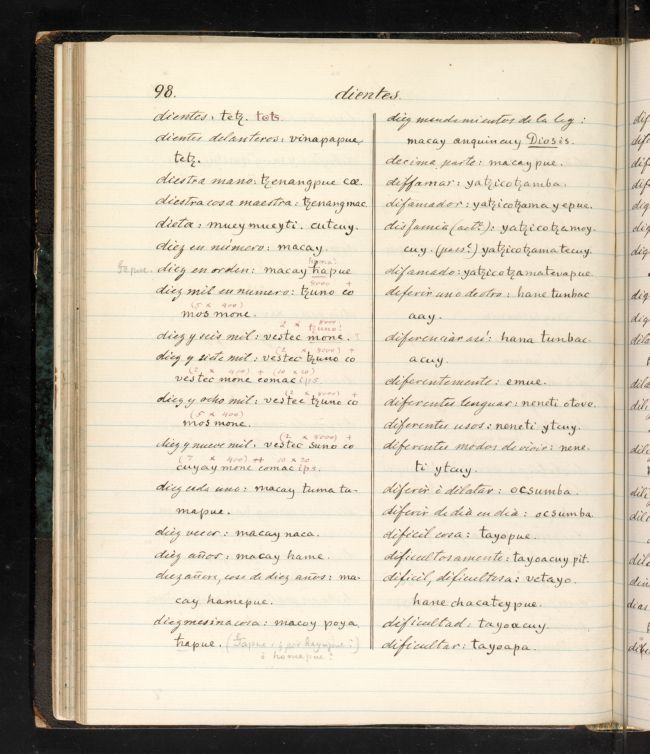 98.
dientes.
dientes: tetz. tots.
dientes delanteros: vinapapue,
tetz.
diestra mano: tzenangpue cœ.
diestra cosa maestra: tzenangmac.
dieta: mueymueyti. cutcuy.
diez en número: macay.
hama!
diez en orden: macay hapue
8000 +
diez mil en numero: tzuno co
(5 x 400)
mos mone.
2 x 8000!
tzuno!
diez y seis mil: vestec mone.
(2 x 8000) +
diez y siete mil: vestec tzuno co
(2 x 400) + (10 x 20)
vestec mone comac ips
(2 x 8000) +
diez y ocho mil: vestec tzuno co
(5 x 400)
mos mone.
(2 x 8000) +
diez y nueve mil: vestec suno co
(7 x 400) + 10 x 20
cuyay mone comac ips.
diez cada uno: macay tuma tu-
mapue.
diez veces: macay naca.
diez años: macay hame.
diez años, cosa de diez años: ma-
cay hamepue.
diezmesina cosa: macay poya
hapue.
ó homepue?
diez mandamientos de la ley:
macay anquincuy Diosis.
decima parte: macaypue.
diffamar: yatzicotzamba.
difamador: yatzicotzamayepue.
disfamia (acte.): yatzicotzamoy-
cuy. (pass.e) yatzicotzamatecuy.
difamado: yatzicotzamatevapue.
diferir uno de otro: hane tunbac
aay.
diferenciar asi: hana tunbac-
acuy.
diferentemente: emue.
diferentes lenguas: neneti otove.
diferentes usos: neneti ytcuy.
diferentes modos de vivir: nene-
ti ytcuy.
diferir ó dilatar: ocsumba.
diferir de dia en dia: ocsumba
dificil cosa: tayopue.
dificultosamente: tayoacuy pit.
dificil, dificultosa: vctayo.
hane chacateypue.
dificultad: tayoacuy.
dificultar: tayoapa.